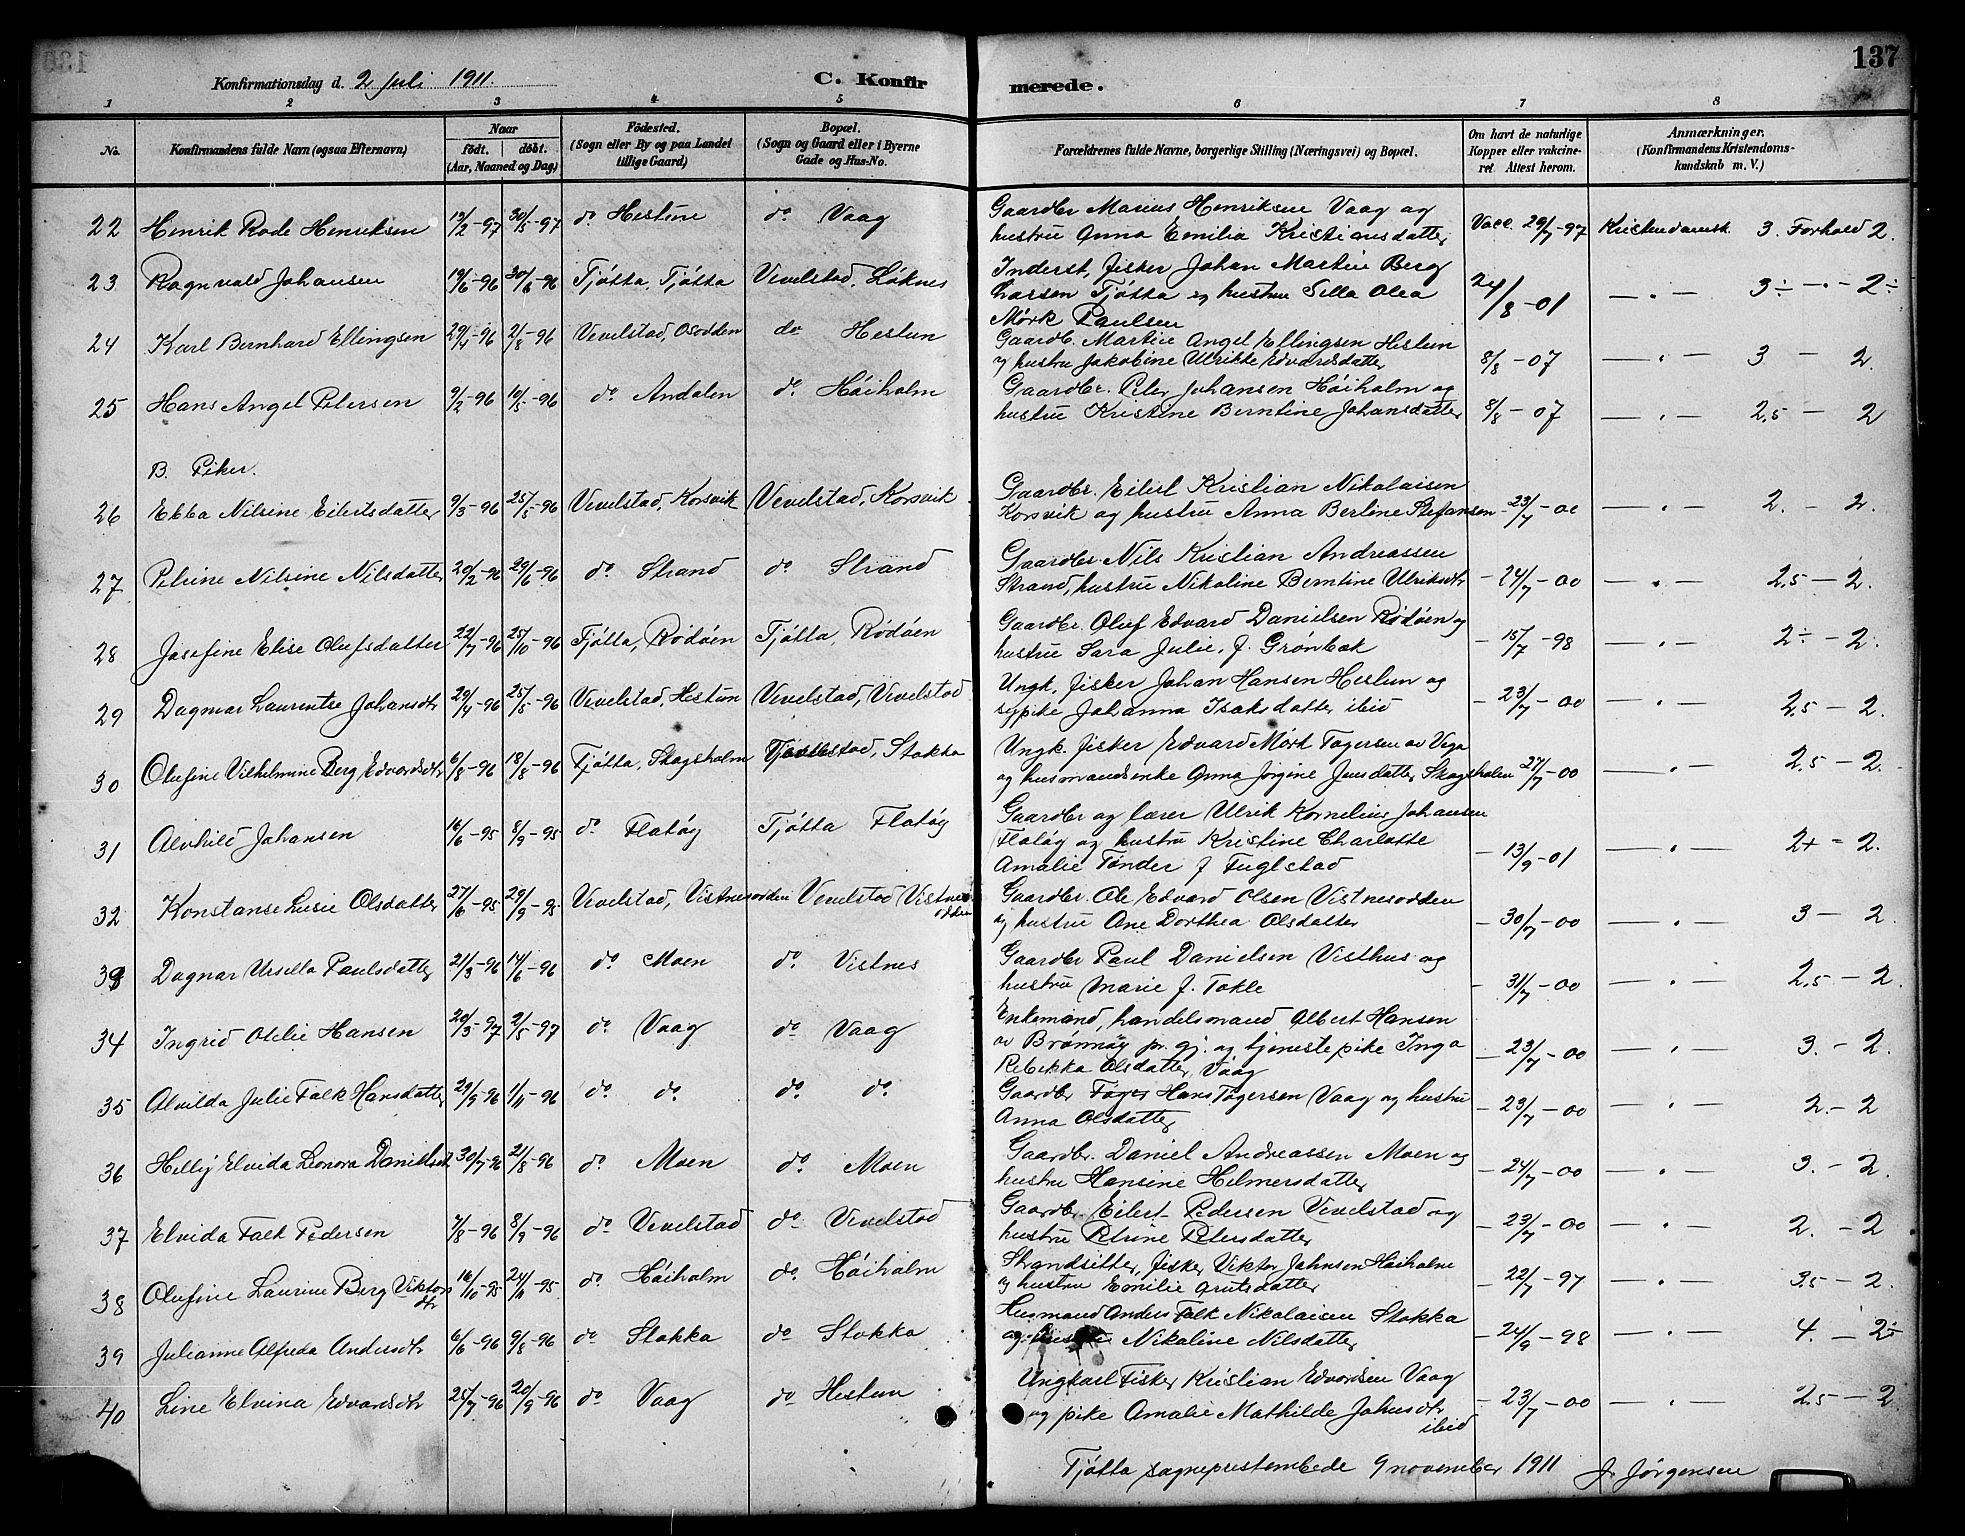 137
Konfirmationsdag d. 2 Juli 1911. C. Konfirmerede.
1 2 3 4 5 6 7 8
No. Konfirmandens fulde Navn (ogsaa Efternavn) Naar født. døbt. (Aar, Maaned og Dag) Fødested. (Sogn eller By og paa Landet tillige Gaard) Bopæl. (Sogn og Gaard eller i Byerne Gade og Hus-No. Forældrenes fulde Navne, borgerlige Stilling (Næringsvei) og Bopæl. Om havt de naturlige Kopper eller vakcineret. Attest herom. Anmærkninger. (Konfirmandens Kristendomskundskab m. V.)
22 Henrik Rode Henriksen 12/2-97 30/5-97 do Hestun do Vaag Gaardbr Marius Henriksen Vaag og
hustru Anna Emilia Kristiansdatter Vacc. 29/7-97 Kristendomsk. 3. Forhold 2.
23 Ragnvald Johansen 19/6-96 30/6-96 Tjøtta, Tjøtta Vevelstad, Løknes Inderst, fisker Johan Martin Berg
Larsen Tjøtta og hustru Sella Olea
Mørk Paulsen 24/8-01 — „ — 3÷ - „ - 2÷
24 Karl Bernhard Ellingsen 29/4-96 2/8-96 Vevelstad, Osodden do Hestun Gaardb. Martin Angel Ellingsen Hestun
og hustru Jakobine Ulrikke Edvardsdatter 8/8-07 — „ — 3 — 2.
25 Hans Angel Petersen 9/2-96 10/5-96 do Andalen do Høiholm Gaardbr. Peter Johansen Høiholm og
hustru Kristine Berntine Johansdatter 8/8-07 — „ — 2,5 — 2
B. Piker.
26 Ebba Nilsine Eilertsdatter 9/3-96 25/5-96 Vevelstad, Korsvik Vevelstad, Korsvik Gaardbr. Eilert Kristian Nikolaisen
Korsvik og hustru Anna Berline Stefansen 23/7-00 — „ — 2. - 2.
27 Petrine Nilsine Nilsdatter 20/2-96 29/6-96 do Strand do Strand Gaardbr Nils Kristian Andreassen
Strand, hustru Nikoline Berntine Ulriksdtr 24/7-00 — „ — 2.5 — 2.
28 Josefine Elise Olufsdatter 22/7-96 25/10-96 Tjøtta, Rødøen Tjøtta, Rødøen Gaardbr. Oluf Edvard Danielsen Rødøen og
hustru Sara Julie, f. Grønbæk 15/7-98 — „ — 2÷ - 2.
29 Dagmar Laurentse Johansdtr 29/4-96 25/5-96 Vevelstad, Hestun Vevelstad, Vevelstad Ungk. fisker Johan Hansen Hestun og
sypike Johanna Isaksdatter ibid 23/7-00 — „ — 2.5 — 2.
30 Olufine Vilhelmine Berg Edvardsdtr 6/8-96 18/8-96 Tjøtta, Skogsholm Vevelstad, Stokka Ungk. fisker Edvard Mørk Tagersen av Vega
og husmandsenke Anna Jørgine Jensdatter Skogsholm 27/7-00 — „ — 2.5 — 2.
31 Alvhild Johansen 16/6-95 8/9-95 do Flatøy Tjøtta Flatøy Gaardbr og lærer Ulrik Kornelius Johansen
Flatøy og hustru Kristine Charlotte
Amalie Tønder f Fuglstad 13/9-01 — „ — 2+ - 2.
32 Konstanse Lusie Olsdatter 27/6-95 29/9-95 Vevelstad, Vistnesodden Vevelstad Vistnesodden Gaardbr. Ole Edvard Olsen Vistnesodden
og hustru Ane Dorthea Olsdatter 30/7-00 — „ — 3 - 2.
33 Dagnar Ursella Paulsdatter 21/3-96 14/6-96 do Moen do. Vistnes Gaardbr Paul Danielsen Visthus og
hustru Marie f. Tokle 31/7-00 — „ — 2,5 — 2.
34 Ingrid Otilie Hansen 20/3-97 2/5-97 do Vaag do Vaag Enkemand, handelsmand Albert Hansen
av Brønnøy pr. gj. og tjenestepike Inga
Rebekka Olsdatter, Vaag 23/7-00 — „ — 3. - 2.
35 Alvilda Julie Falk Hansdatter 29/9-96 1/11-96 do do do do. Gaardbr Hans Tøgersen Vaag og hustru
Anna Olsdatter 23/7-00 — „ — 2. - 2
36 Helly Elvida Leonora Danielsdtr 30/7-96 2/8-96 do Moen do. Moen Gaardbr. Daniel Andreassen Moen og
hustru Hansine Helmersdatter 24/7-00 — „ — 3. - 2.
37 Elvida Falk Pedersen 7/8-96 8/9-96 do Vevelstad do Vevelstad Gaardbr. Eilert Pedersen Vevelstad og
hustru Petrine Petersdatter 23/7-00 — „ — 2. - 2
38 Olufine Laurine Berg Viktorsdtr 16/10-95 24/11-95 do. Høiholm do. Høiholm Strandsitter, fisker Viktor Johnsen Høiholm
og hustru Emilie Arntsdatter 22/7-97 — „ — 3.5 — 2.
39 Julianne Alfreda Andersdtr 6/6-96 9/8-96 do Stokka do Stokka Husmand Anders Falk Nikolaisen Stokka
og hustru Nikoline Nilsdatter 24/9-98 — „ — 4. - 2÷
40 Line Elvina Edvardsdtr 25/7-96 20/9-96 do Vaag do Hestun Ungkarl Fisker Kristian Edvardsen Vaag
og pike Amalie Mathilde Johnsdtr
ibid 23/7-00 — „ — 2.5 — 2
Tjøtta sogneprestembede 9 november 1911 J. Jørgensen